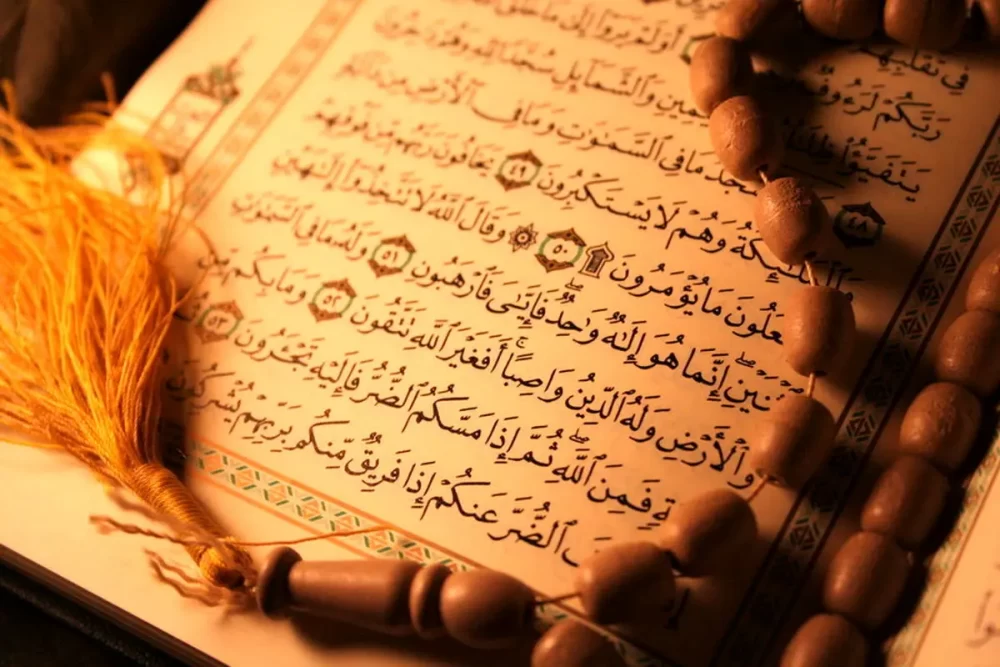 فِي تَقَلُّبِهِمۡ
رَبَّكُمۡ لَرَءُوفٞ أَوَلَمۡ يَرَوۡاْ إِلَىٰ مَا خَلَقَ
يَتَفَيَّؤُاْ ظِلَٰلُهُۥ ٱلۡيَمِينِ وَٱلشَّمَآئِلِ سُجَّدٗا لِّلَّهِ وَهُمۡ دَٰخِرُونَ
٤٨ يَسۡجُدُۤ مَا فِي ٱلسَّمَٰوَٰتِ وَمَا فِي ٱلۡأَرۡضِ مِن دَآبَّةٖ
وَٱلۡمَلَٰٓئِكَةُ وَهُمۡ لَا يَسۡتَكۡبِرُونَ ٤٩ يَخَافُونَ رَبَّهُم مِّن فَوۡقِهِمۡ
وَيَفۡعَلُونَ مَا يُؤۡمَرُونَ ۩ ٥٠ ۞ وَقَالَ ٱللَّهُ لَا تَتَّخِذُوٓاْ إِلَٰهَيۡنِ
ٱثۡنَيۡنِۖ إِنَّمَا هُوَ إِلَٰهٞ وَٰحِدٞ فَإِيَّٰيَ فَٱرۡهَبُونِ ٥١ وَلَهُۥ مَا فِي ٱلسَّمَٰوَٰتِ
وَٱلۡأَرۡضِ وَلَهُ ٱلدِّينُ وَاصِبًاۚ أَفَغَيۡرَ ٱللَّهِ تَتَّقُونَ ٥٢ وَمَا بِكُم مِّن
نِّعۡمَةٖ فَمِنَ ٱللَّهِۖ ثُمَّ إِذَا مَسَّكُمُ ٱلضُّرُّ فَإِلَيۡهِ تَجۡـَٔرُونَ ٥٣ ثُمَّ
كَشَفَ ٱلضُّرَّ عَنكُمۡ إِذَا فَرِيقٞ مِّنكُم بِرَبِّهِمۡ يُشۡرِكُونَ